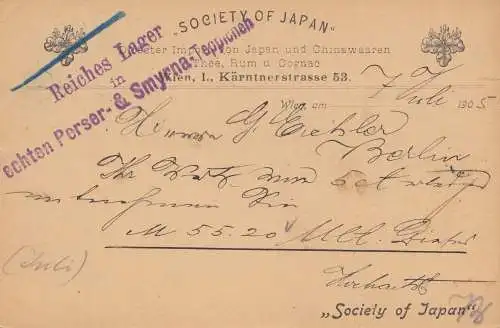 „SOCIETY OF JAPAN“
Directer Import von Japan und Chinawaaren
Thee, Rum u. Cognac
Wien, I., Kärntnerstrasse 53.
Reiches Lager
in
echten Perser- & Smyrna-Teppichen
Wien, am 7 Juli 1905
Herrn G. Eichler
Berlin
Ihr
entnehmen Sie
M 55.20
(Juli)
„Society of Japan“